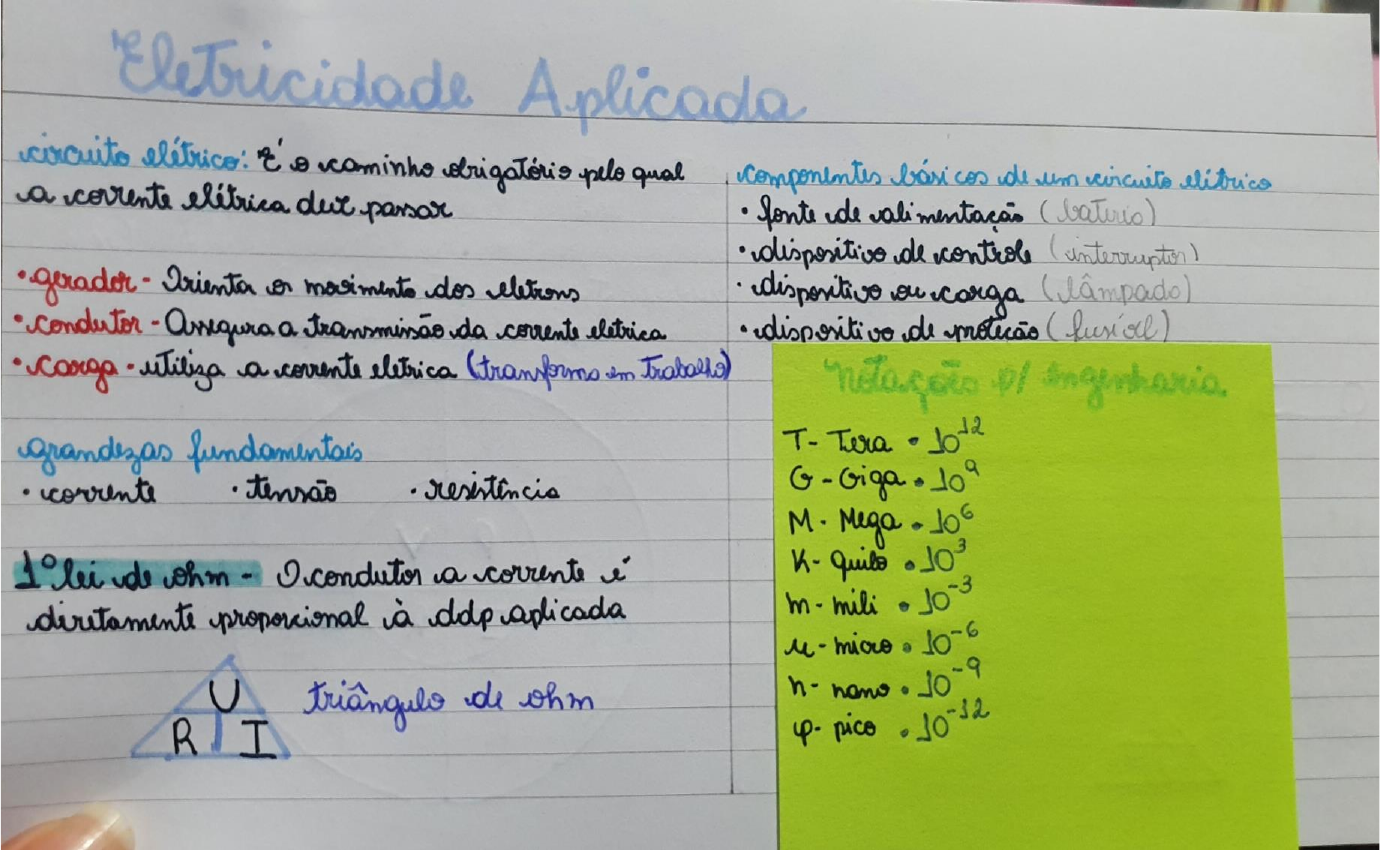 Eletricidade Aplicada
circuito elétrico: É o caminho obrigatório pelo qual
a corrente elétrica deve passar
• gerador - Orienta o movimento dos eletrons
• condutor - Assegura a transmissão da corrente eletrica
• carga - utiliza a corrente eletrica (transforma em trabalho)
grandezas fundamentais
• corrente • tensão • resistência
1º lei de ohm - O condutor a corrente é
diretamente proporcional à ddp aplicada
U
R I
triângulo de ohm
componentes básicos de um circuito elétrico
• fonte de alimentação (bateria)
• dispositivo de controle (interruptor)
• dispositivo ou carga (lâmpada)
• dispositivo de proteção (fusível)
Notações p/ Engenharia
T - Tera • 10¹²
G - Giga • 10⁹
M - Mega • 10⁶
K - quilo • 10³
m - mili • 10⁻³
µ - micro • 10⁻⁶
n - nano • 10⁻⁹
p - pico • 10⁻¹²